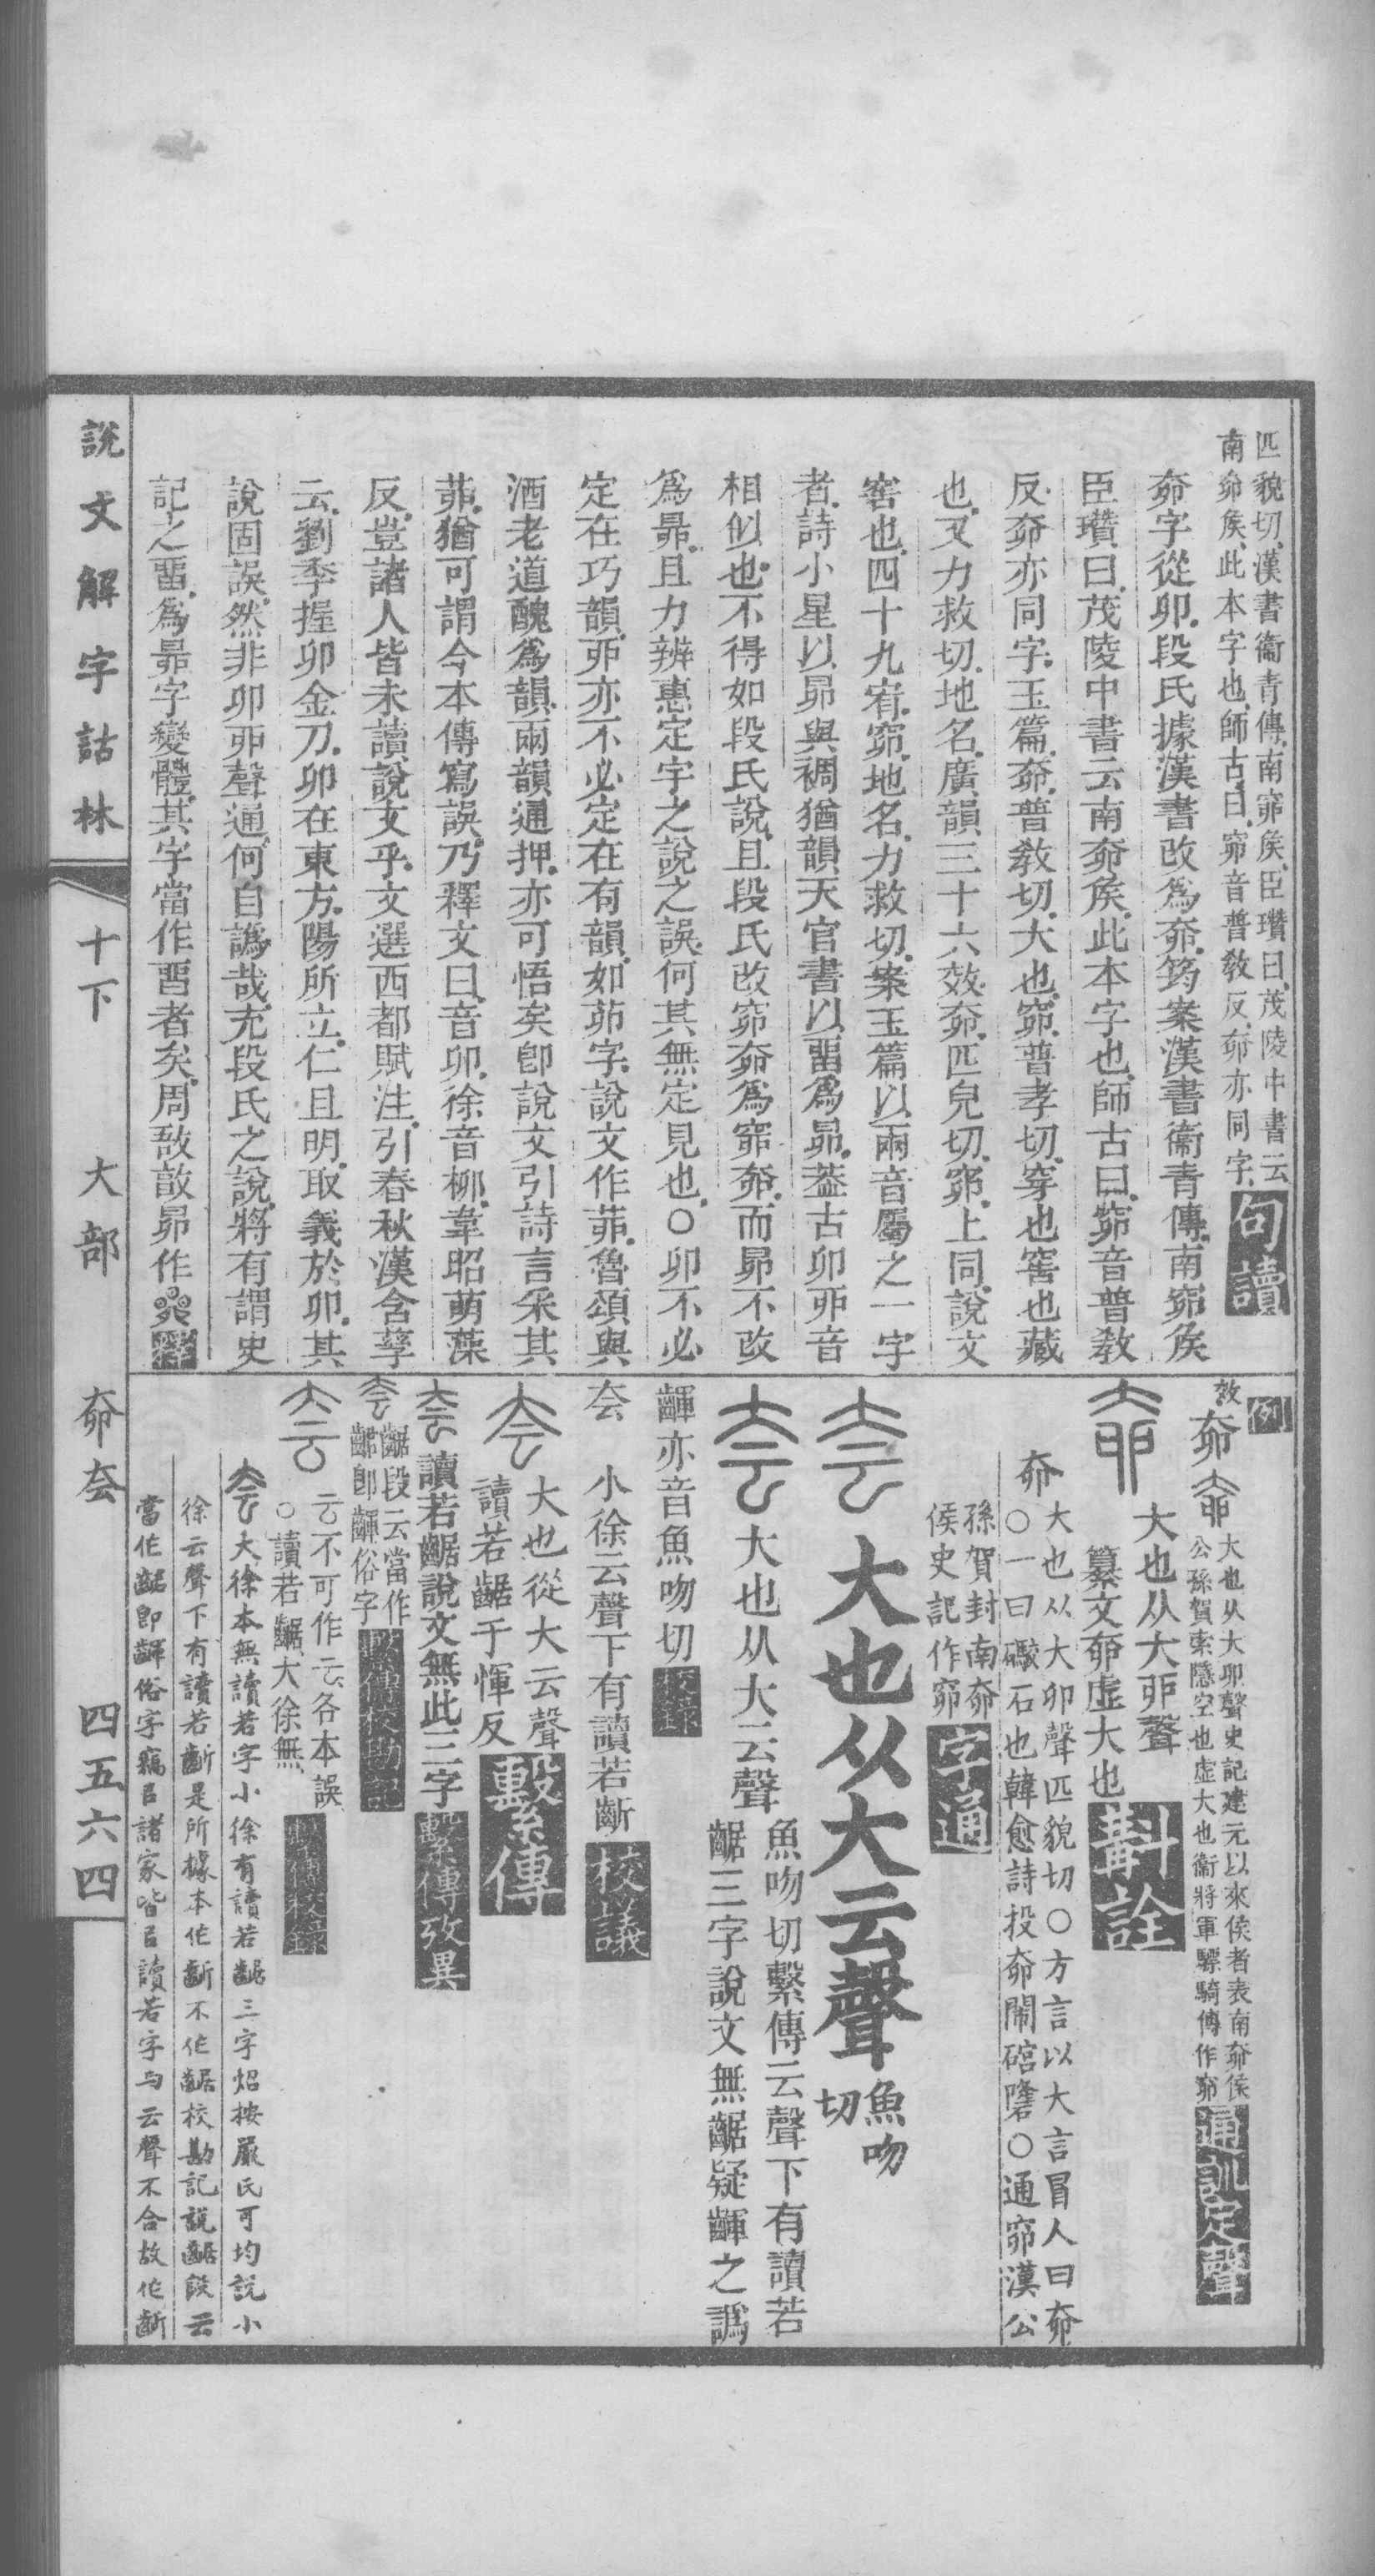 匹貌切漢書衞青傳南窌矦臣瓚曰茂陵中書云
南奅矦此本字也師古曰窌音普敎反奅亦同字
句讀
奅字從卯段氏據漢書改爲奅筠案漢書衞青傳南窌矦
臣瓚曰茂陵中書云南奅矦此本字也師古曰窌音普敎
反奅亦同字玉篇奅普敎切大也窌普孝切穿也窖也藏
也又力救切地名廣韻三十六效奅匹皃切窌上同說文
窖也四十九宥窌地名力救切案玉篇以兩音屬之一字
者詩小星以昴與裯猶韻天官書以畱爲昴葢古卯丣音
相似也不得如段氏說且段氏改窌奅爲窌奅而昴不改
爲昴且力辨惠定宇之說之誤何其無定見也○卯不必
定在巧韻丣亦不必定在有韻如茆字說文作茆魯頌與
酒老道醜爲韻兩韻通押亦可悟矣卽說文引詩言采其
茆猶可謂今本傳寫誤乃釋文曰音卯徐音柳韋昭萌藻
反豈諸人皆未讀說文乎文選西都賦注引春秋漢含孳
云劉季握卯金刀卯在東方陽所立仁且明取義於卯其
說固誤然非卯丣聲通何自譌哉尢段氏之說將有謂史
記之畱爲昴字變體其字當作畱者矣周敔敨昴作
釋
例
效
奅 大也从大卯聲史記建元以來侯者表南奅侯
公孫賀索隱空也虛大也衞將軍驃騎傳作窌
通訓定聲
大也从大丣聲
纂文奅虛大也
斠詮
奅 大也从大卯聲匹貌切○方言以大言冒人曰奅
○一曰礮石也韓愈詩投奅鬧䃔隆○通窌漢公
孫賀封南奅
侯史記作窌
字通
大也从大云聲 魚吻
切
大也从大云聲 魚吻切繫傳云聲下有讀若
齞三字說文無齞疑齳之譌
齳亦音魚吻切
校錄
夽 小徐云聲下有讀若齗
校議
大也從大云聲
讀若齞于惲反
繫傳
讀若齞說文無此三字
繫傳攷異
齞段云當作
齳卽齳俗字
繫傳校勘記
云不可作云各本誤
○讀若齞大徐無
繫傳校錄
夽大徐本無讀若字小徐有讀若齞三字炤按嚴氏可均說小
徐云聲下有讀若齗是所據本作齗不作齞校勘記說齞段云
當作齞卽齳俗字竊㠯諸家皆㠯讀若字与云聲不合故作齗
說文解字詁林
十下
大部
奅夽
四五六四